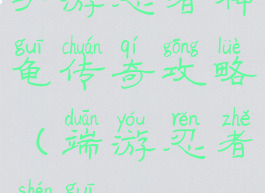 游忍者神
guī chuán qí gōng lüè
龟传奇攻略
duān yóu rěn zhě
(端游忍者
shén guī